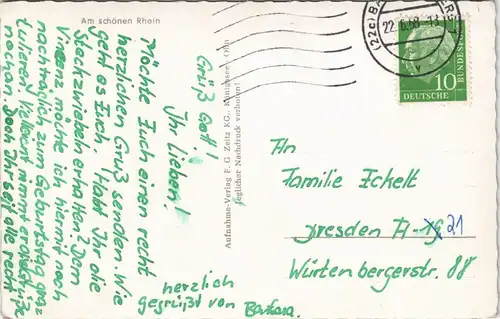 Am schönen Rhein
Grüß Gott!
Ihr Lieben!
Möchte Euch einen recht
herzlichen Gruß senden. Wie
geht es Euch. Habt Ihr die
Steckzwiebeln erhalten? Dem
Vinzenz möchte ich hiermit noch
nachträglich zum Geburtstag gra-
tulieren. Vielleicht nimmt er
noch an. Seid Ihr alle recht
herzlich
gegrüßt von Barbara.
Aufnahme-Verlag F. G. Zeitz KG., Königssee/Obb
Jeglicher Nachdruck verboten!
(22c) BA
22.6.58-13
10
DEUTSCHE
BUNDESPOST
An
Familie Eckelt
Dresden A- 21
Würtenbergerstr. 88